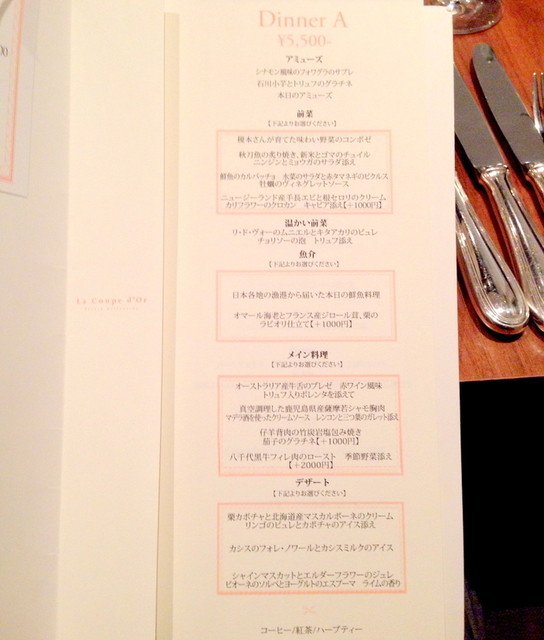 Dinner A
¥5,500-
アミューズ
シナモン風味のフォワグラのサブレ
石川小芋とトリュフのグラチネ
本日のアミューズ
前菜
【下記よりお選びください】
榎木さんが育てた味わい野菜のコンポゼ
秋刀魚の炙り焼き、新米とゴマのチュイル
ニンジンとミョウガのサラダ添え
鮮魚のカルパッチョ 水菜のサラダと赤タマネギのピクルス
牡蠣のヴィネグレットソース
ニュージーランド産手長エビと根セロリのクリーム
カリフラワーのクロカン キャビア添え【+1000円】
温かい前菜
リ・ド・ヴォーのムニエルとキタアカリのピュレ
チョリソーの泡 トリュフ添え
魚介
【下記よりお選びください】
日本各地の漁港から届いた本日の鮮魚料理
オマール海老とフランス産ジロール茸、栗の
ラビオリ仕立て【+1000円】
La Coupe d'Or
メイン料理
【下記よりお選びください】
オーストラリア産牛舌のブレゼ 赤ワイン風味
トリュフ入りポレンタを添えて
真空調理した鹿児島県産薩摩若シャモ胸肉
マデラ酒を使ったクリームソース レンコンと三つ葉のガレット添え
仔羊背肉の竹炭岩塩包み焼き
茄子のグラチネ【+1000円】
八千代黒牛フィレ肉のロースト 季節野菜添え
【+2000円】
デザート
【下記よりお選びください】
栗カボチャと北海道産マスカルポーネのクリーム
リンゴのピュレとカボチャのアイス添え
カシスのフォレ・ノワールとカシスミルクのアイス
シャインマスカットとエルダーフラワーのジュレ
ピオーネのソルベとヨーグルトのエスプーマ ライムの香り
コーヒー/紅茶/ハーブティー